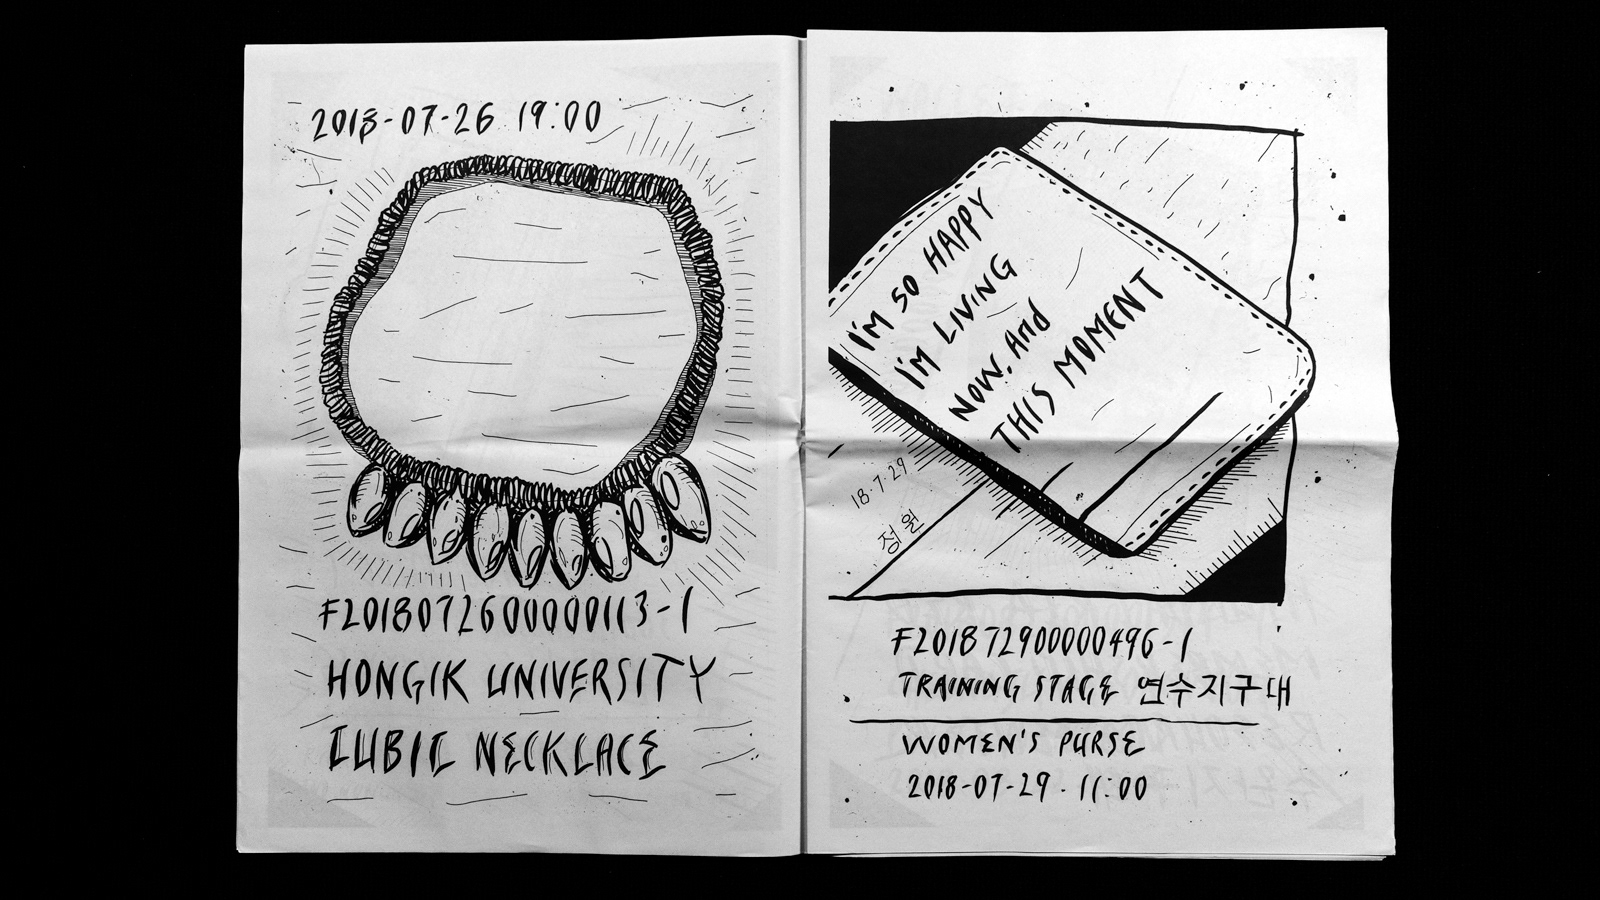 2018-07-26 19:00
F2018072600000113-1
HONGIK UNIVERSITY
CUBIC NECKLACE
I'M SO HAPPY
I'M LIVING
NOW. AND
THIS MOMENT
18.7.29
정원
F201872900000496-1
TRAINING STAGE 연수지구대
WOMEN'S PURSE
2018-07-29. 11:00